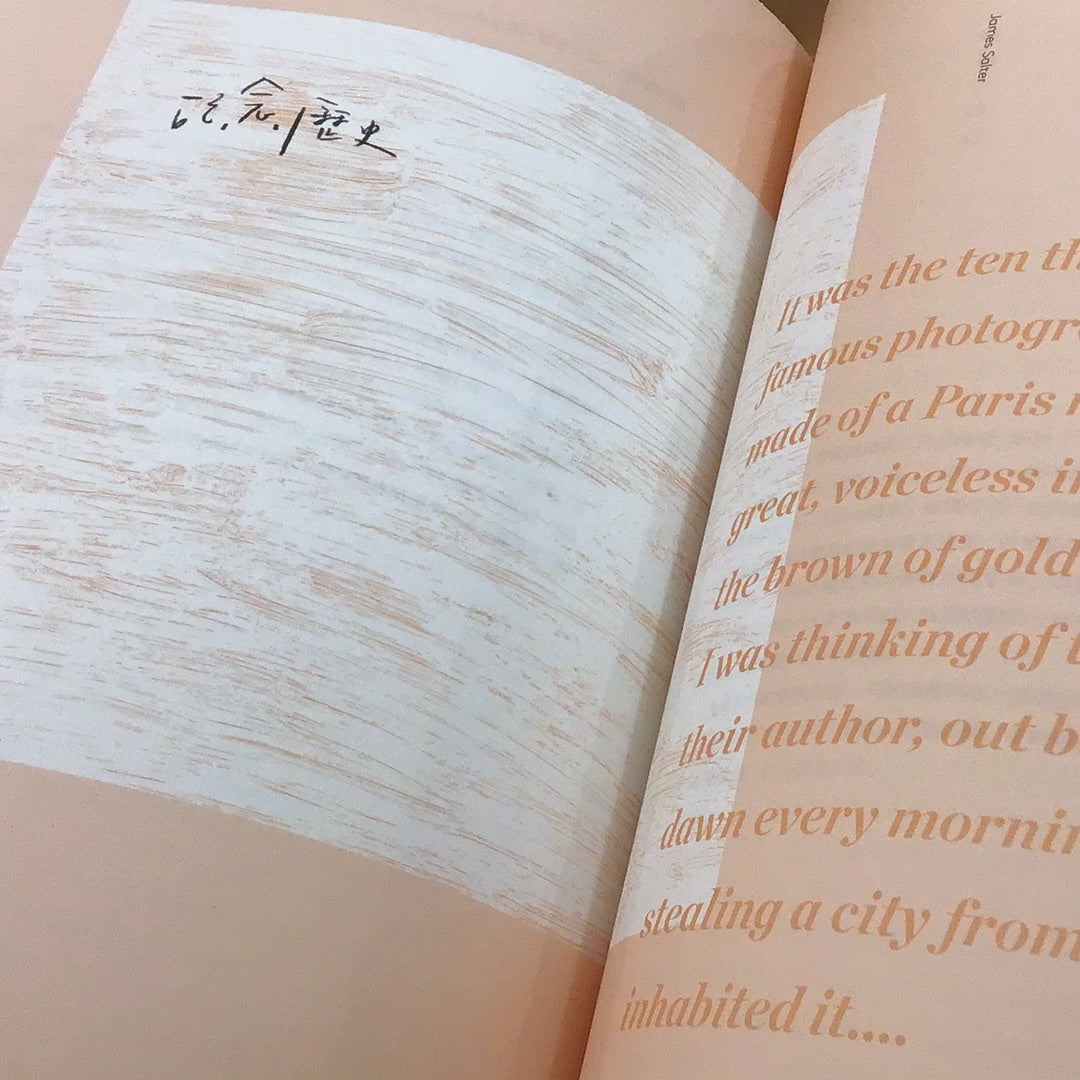 念/歷史
James Salter
It was the ten
famous
made of a Paris
great, voiceless
the brown of gold
I was thinking of
their author, out
dawn every
stealing a city from
inhabited it....